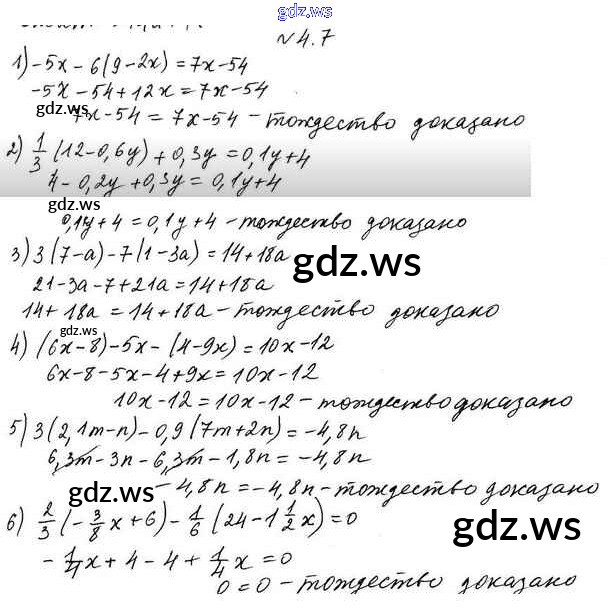 gdz.ws
№ 4.7
1) -5x - 6(9-2x) = 7x-54
-5x - 54 + 12x = 7x-54
gdz.ws
7x-54 = 7x-54 - тождество доказано
2) 1/3 (12-0,6y) + 0,3y = 0,1y+4
4 - 0,2y + 0,3y = 0,1y+4
gdz.ws
0,1y+4 = 0,1y+4 - тождество доказано
3) 3(7-a) - 7(1-3a) = 14+18a
gdz.ws
21-3a-7+21a = 14+18a
14+18a = 14+18a - тождество доказано
gdz.ws
4) (6x-8) - 5x - (4-9x) = 10x-12
6x-8-5x-4+9x = 10x-12
10x-12 = 10x-12 - тождество доказано
5) 3(2,1m-n) - 0,9(7m+2n) = -4,8n
6,3m - 3n - 6,3m - 1,8n = -4,8n
gdz.ws
-4,8n = -4,8n - тождество доказано
6) 2/3 (-3/8 x + 6) - 1/6 (24 - 1 1/2 x) = 0
gdz.ws
-1/4 x + 4 - 4 + 1/4 x = 0
0 = 0 - тождество доказано
gdz.ws